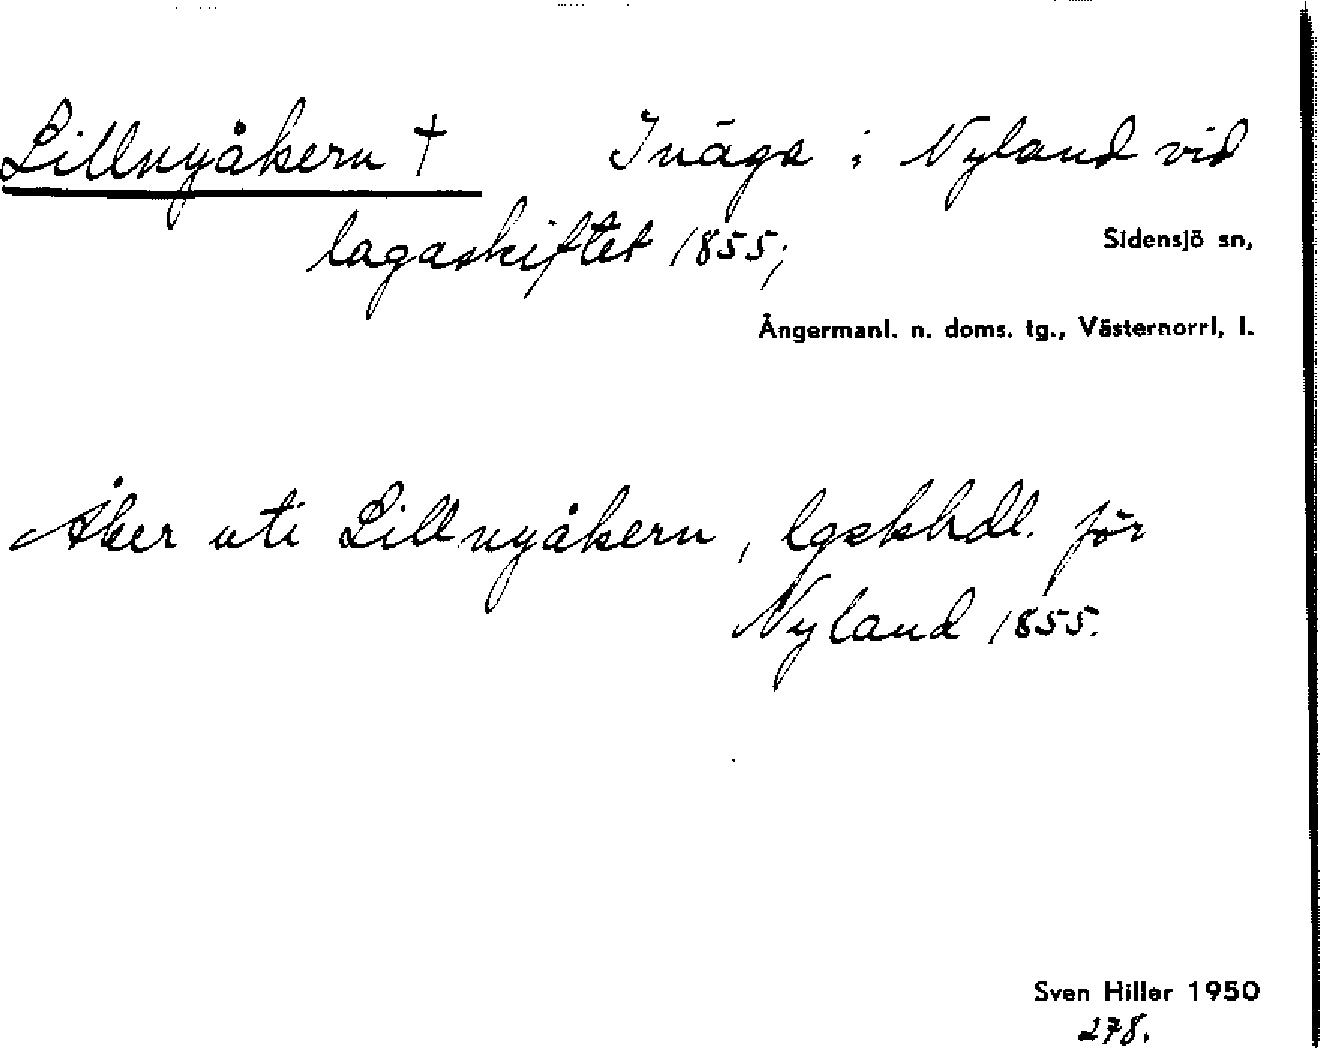 Lillnyåkern † Inäga i Nyland vid
lagaskiftet 1855;
Sidensjö sn,
Ångermanl. n. doms. tg., Västernorrl, l.
Åker uti Lillnyåkern, lgskhdl. för
Nyland 1855.
Sven Hiller 1950
278.